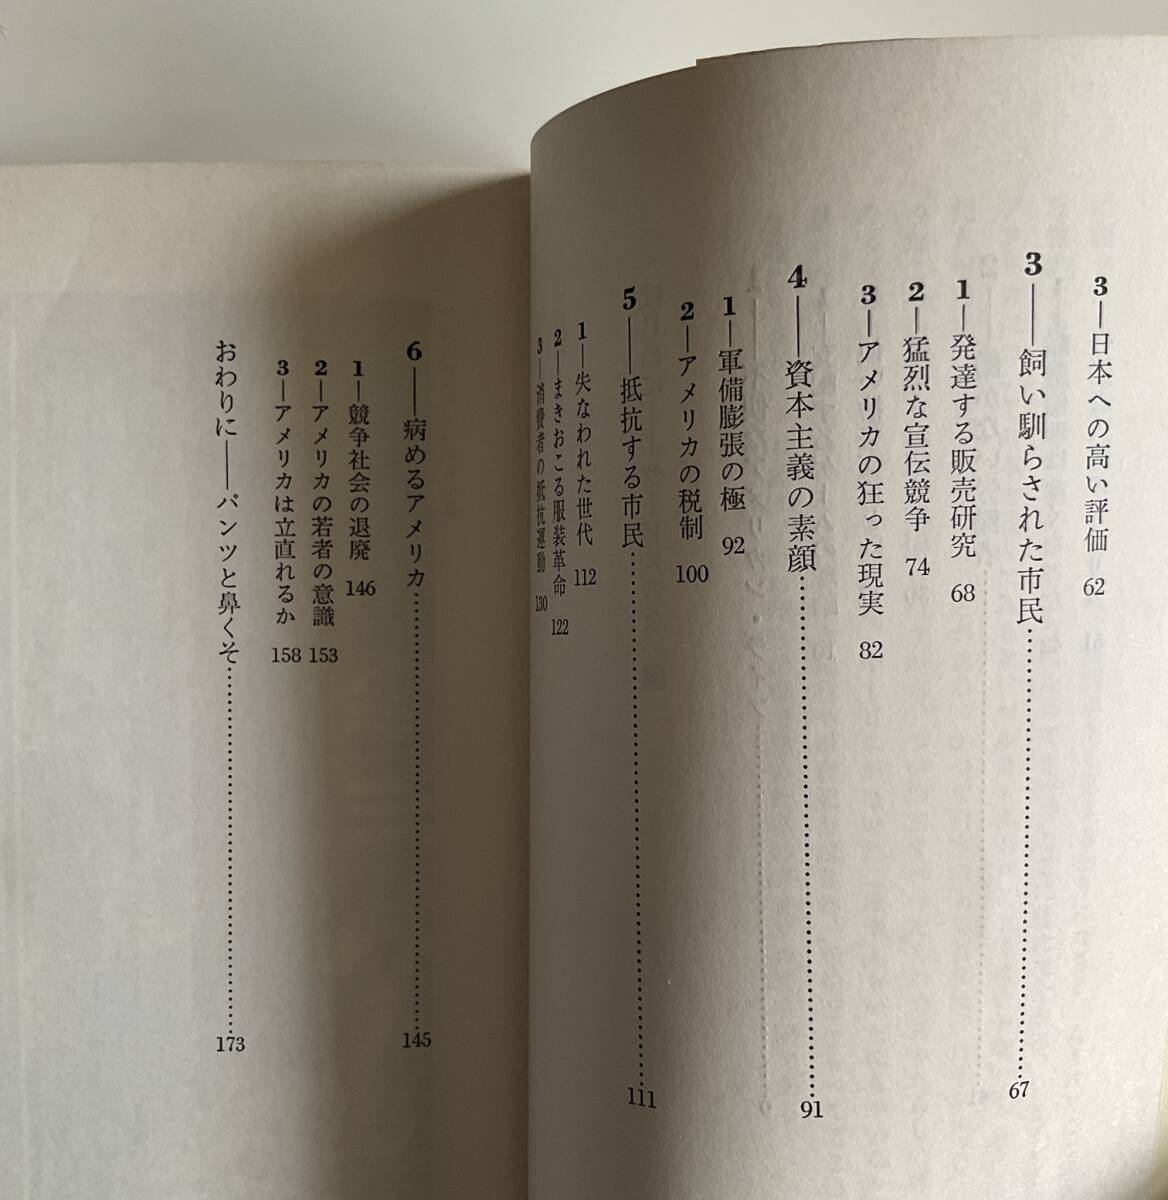 3—日本への高い評価 62
3——飼い馴らされた市民…………67
1—発達する販売研究 68
2—猛烈な宣伝競争 74
3—アメリカの狂った現実 82
4——資本主義の素顔…………91
1—軍備膨張の極 92
2—アメリカの税制 100
5——抵抗する市民…………111
1—失なわれた世代 112
2—まきおこる服装革命 122
3—消費者の抵抗運動 130
6——病めるアメリカ…………145
1—競争社会の退廃 146
2—アメリカの若者の意識 153
3—アメリカは立直れるか 158
おわりに——パンツと鼻くそ…………173